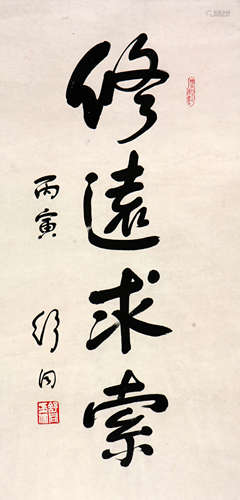 修遠求索
丙寅
舒同